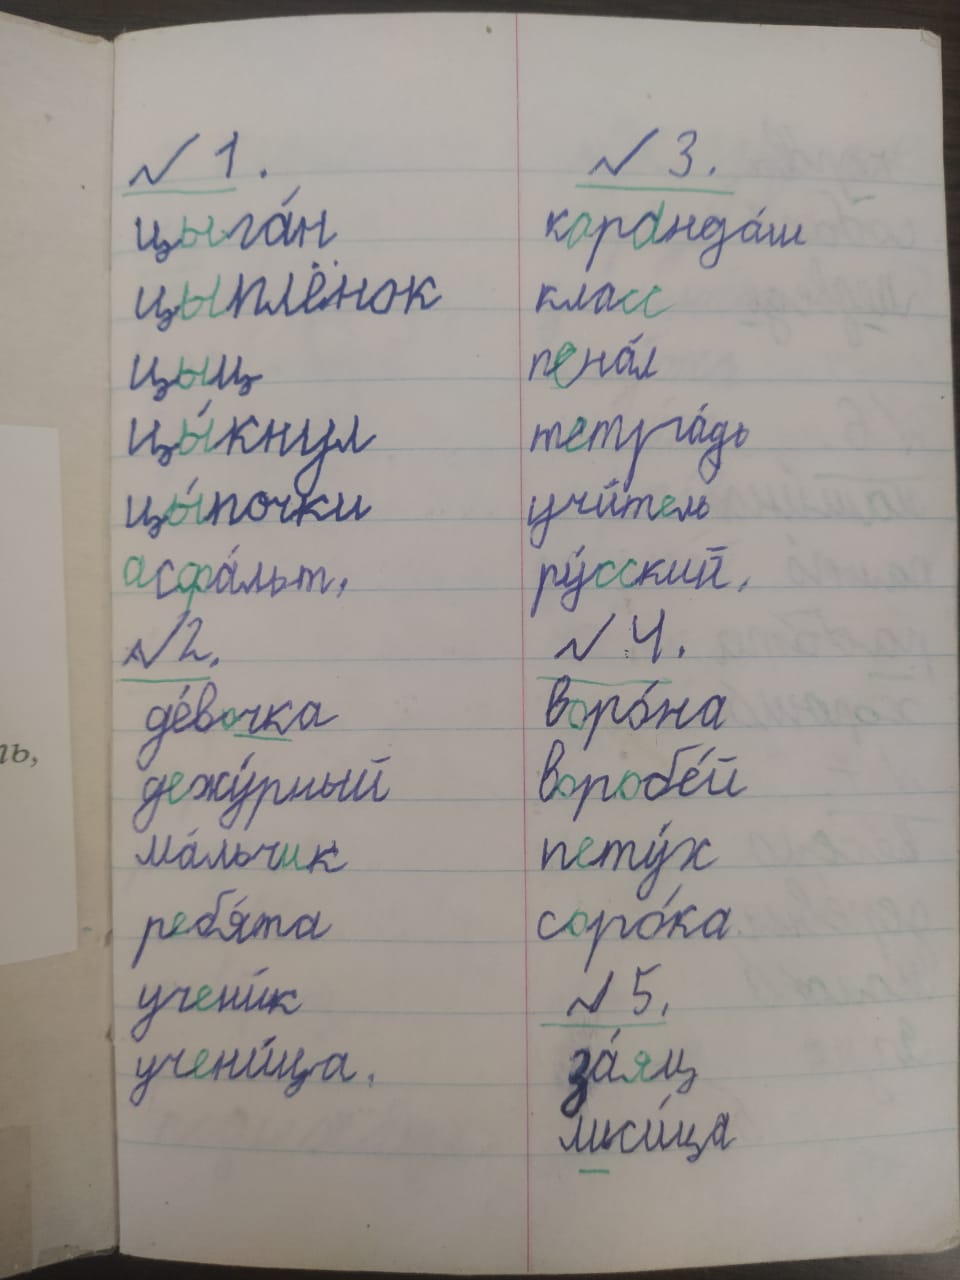 № 1.
цыга́н
цыплёнок
цыц
цы́кнул
цы́почки
асфа́льт.
№ 2.
де́вочка
дежу́рный
ма́льчик
ребя́та
учени́к
учени́ца.
№ 3.
каранда́ш
класс
пена́л
тетра́дь
учи́тель
ру́сский.
№ 4.
воро́на
воробе́й
пету́х
соро́ка
№ 5.
за́яц
лиси́ца
ль,